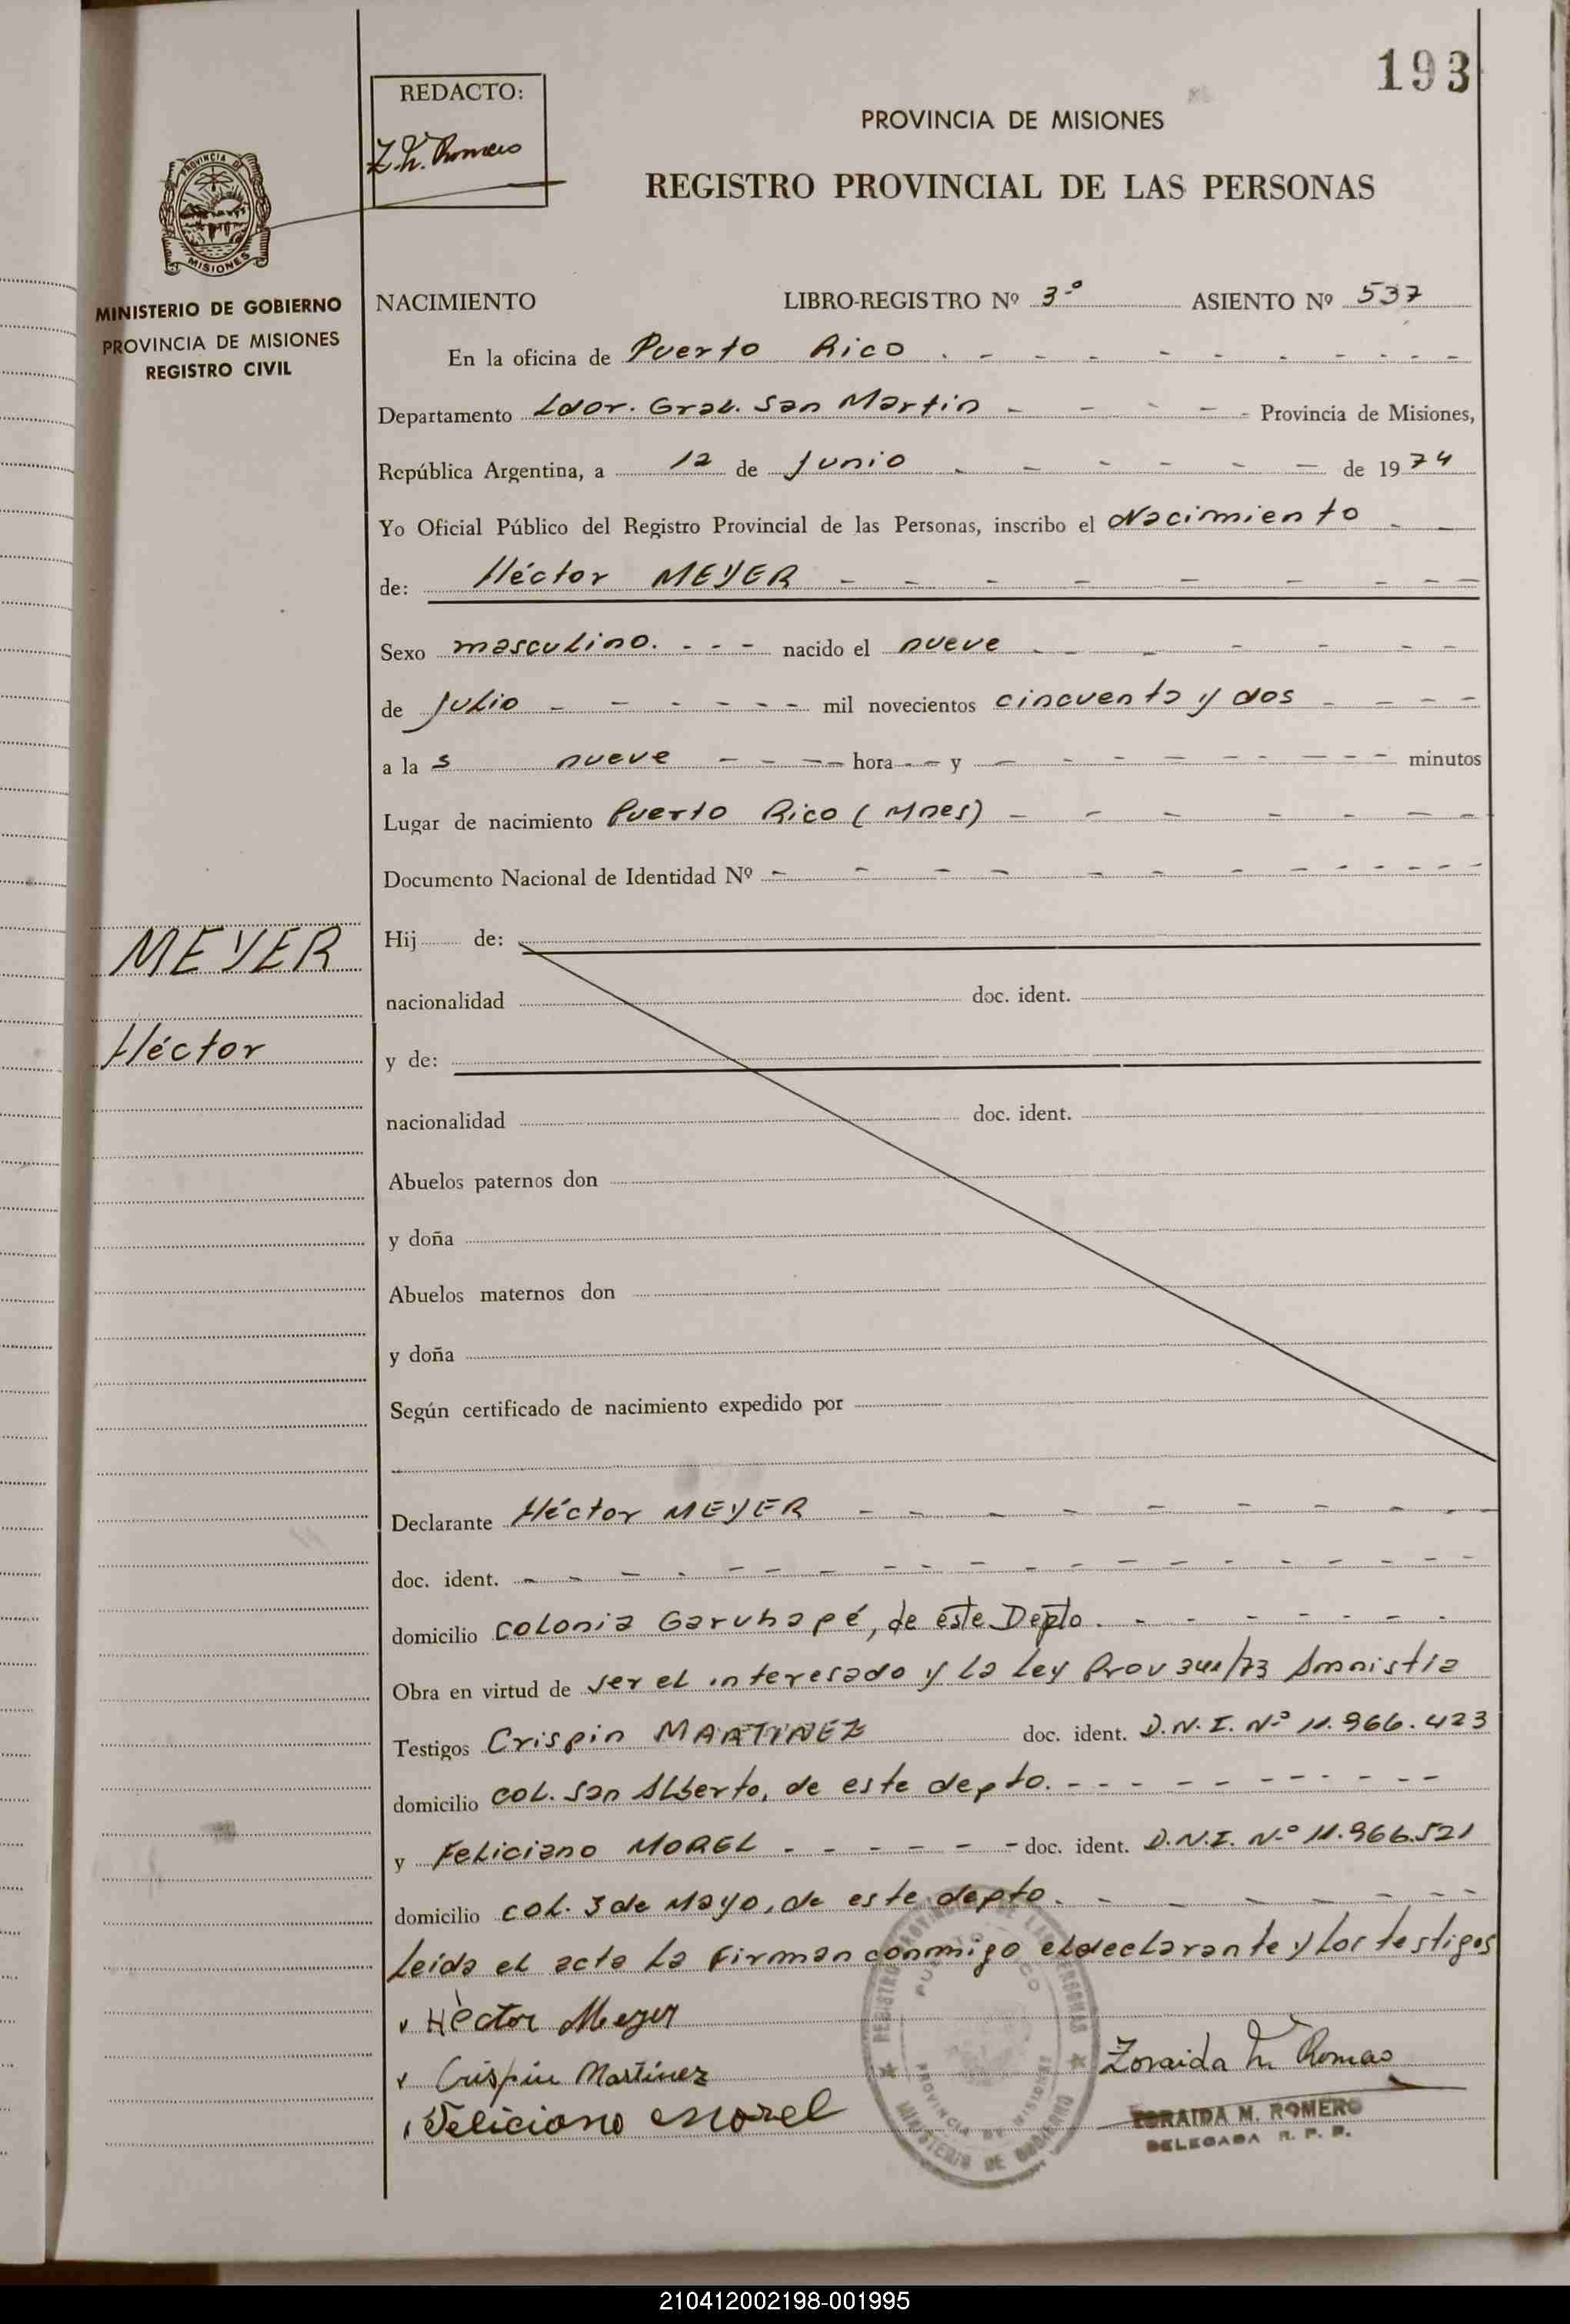 193
REDACTO:
Z. M. Romero
PROVINCIA DE MISIONES
REGISTRO PROVINCIAL DE LAS PERSONAS
PROVINCIA DE
MISIONES
MINISTERIO DE GOBIERNO
PROVINCIA DE MISIONES
REGISTRO CIVIL
NACIMIENTO LIBRO-REGISTRO Nº 3º ASIENTO Nº 537
En la oficina de Puerto Rico . - - - - - - - - - -
Departamento Ldor. Gral. San Martín - - - - - Provincia de Misiones,
República Argentina, a 12 de Junio . - - - - - de 1974
Yo Oficial Público del Registro Provincial de las Personas, inscribo el Nacimiento - -
de: Héctor MEYER - - - - - - - - -
Sexo masculino. - - - nacido el nueve - - - - - - -
de Julio - - - - - - mil novecientos cincuenta y dos - - - -
a la s nueve - - - - hora - - y - - - - - - - - - minutos
Lugar de nacimiento Puerto Rico (Mnes) - - - - - - -
Documento Nacional de Identidad Nº - - - - - - - - - - - -
MEYER
Héctor
Hij de:
nacionalidad doc. ident.
y de:
nacionalidad doc. ident.
Abuelos paternos don
y doña
Abuelos maternos don
y doña
Según certificado de nacimiento expedido por
Declarante Héctor MEYER - - - - - - - - -
doc. ident. - - - - - - - - - - - - - - - - - -
domicilio Colonia Garuhapé, de este Depto. - - - - - - -
Obra en virtud de ser el interesado y la Ley Prov /73 Amnistia
Testigos Crispin MARTINEZ doc. ident. D.N.I. Nº 11.966.423
domicilio Col. San Alberto, de este depto. - - - - - - - - - - -
y Feliciano MOREL - - - - - - doc. ident. D.N.I. Nº 11.966.521
domicilio col. 3 de Mayo, de este depto. - - - - - - -
Leída el acta la firman conmigo el declarante y los testigos
Héctor Meyer
Crispin Martinez
Feliciano Morel
REGISTRO PROVINCIAL DE LAS PERSONAS
PUERTO RICO
PROVINCIA DE MISIONES
MINISTERIO DE GOBIERNO
Zoraida M. Romero
ZORAIDA M. ROMERO
DELEGADA R. P. P.
210412002198-001995